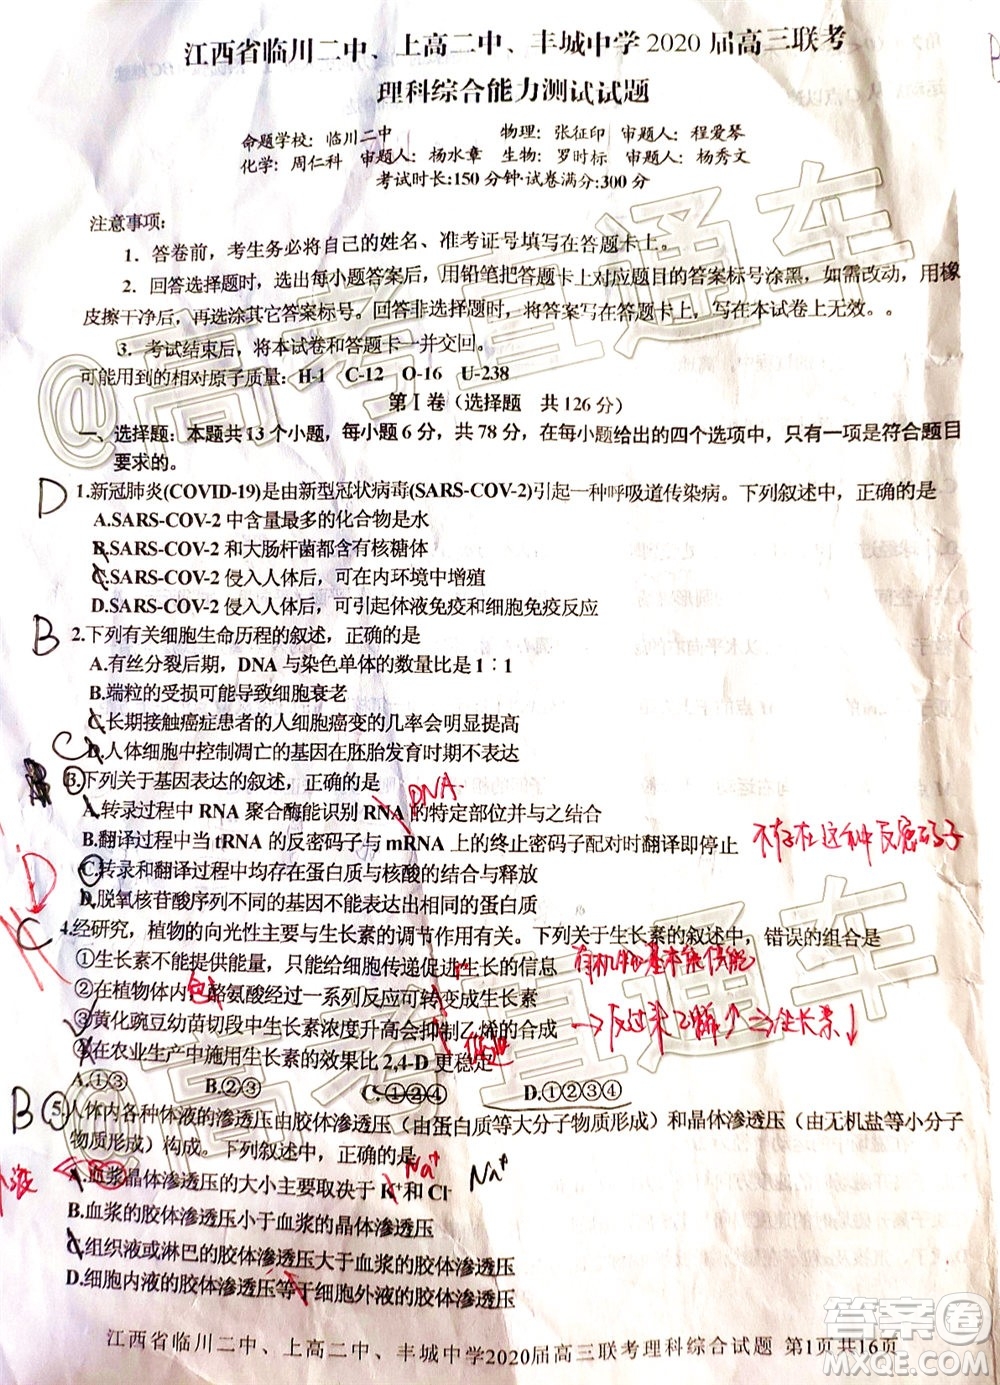 江西省临川二中、上高二中、丰城中学2020届高三联考
理科综合能力测试试题
命题学校：临川二中 物理：张征印 审题人：程爱琴
化学：周仁科 审题人：杨水章 生物：罗时标 审题人：杨秀文
考试时长:150分钟·试卷满分:300分
注意事项:
1．答卷前，考生务必将自己的姓名、准考证号填写在答题卡上。
2．回答选择题时，选出每小题答案后，用铅笔把答题卡上对应题目的答案标号涂黑，如需改动，用橡
皮擦干净后，再选涂其它答案标号。回答非选择题时，将答案写在答题卡上，写在本试卷上无效。。
3．考试结束后，将本试卷和答题卡一并交回。
可能用到的相对原子质量：H-1 C-12 O-16 U-238
第Ⅰ卷（选择题 共126分）
一、选择题：本题共13个小题，每小题6分，共78分，在每小题给出的四个选项中，只有一项是符合题目
要求的。
D
1.新冠肺炎(COVID-19)是由新型冠状病毒(SARS-COV-2)引起一种呼吸道传染病。下列叙述中，正确的是
A.SARS-COV-2中含量最多的化合物是水
B.SARS-COV-2和大肠杆菌都含有核糖体
C.SARS-COV-2侵入人体后，可在内环境中增殖
D.SARS-COV-2侵入人体后，可引起体液免疫和细胞免疫反应
B
2.下列有关细胞生命历程的叙述，正确的是
A.有丝分裂后期，DNA与染色单体的数量比是1∶1
B.端粒的受损可能导致细胞衰老
C.长期接触癌症患者的人细胞癌变的几率会明显提高
D.人体细胞中控制凋亡的基因在胚胎发育时期不表达
C
3.下列关于基因表达的叙述，正确的是
DNA
A.转录过程中RNA聚合酶能识别RNA的特定部位并与之结合
B.翻译过程中当tRNA的反密码子与mRNA上的终止密码子配对时翻译即停止
不存在这种反密码子
C.转录和翻译过程中均存在蛋白质与核酸的结合与释放
D.脱氧核苷酸序列不同的基因不能表达出相同的蛋白质
D
C
4.经研究，植物的向光性主要与生长素的调节作用有关。下列关于生长素的叙述中，错误的组合是
①生长素不能提供能量，只能给细胞传递促进生长的信息
有机物基本能供能
②在植物体内，色氨酸经过一系列反应可转变成生长素
色
③黄化豌豆幼苗切段中生长素浓度升高会抑制乙烯的合成
→反过来乙烯↑→生长素↓
促进
④在农业生产中施用生长素的效果比2,4-D更稳定
A.①③ B.②③ C.①②④ D.①②③④
B
5.人体内各种体液的渗透压由胶体渗透压（由蛋白质等大分子物质形成）和晶体渗透压（由无机盐等小分子
物质形成）构成。下列叙述中，正确的是
Na⁺
A.血浆晶体渗透压的大小主要取决于K⁺和Cl⁻
Na⁺
B.血浆的胶体渗透压小于血浆的晶体渗透压
C.组织液或淋巴的胶体渗透压大于血浆的胶体渗透压
D.细胞内液的胶体渗透压等于细胞外液的胶体渗透压
江西省临川二中、上高二中、丰城中学2020届高三联考理科综合试题 第1页共16页
@高考直通车
@高考直通车
答案卷
MXQE.COM